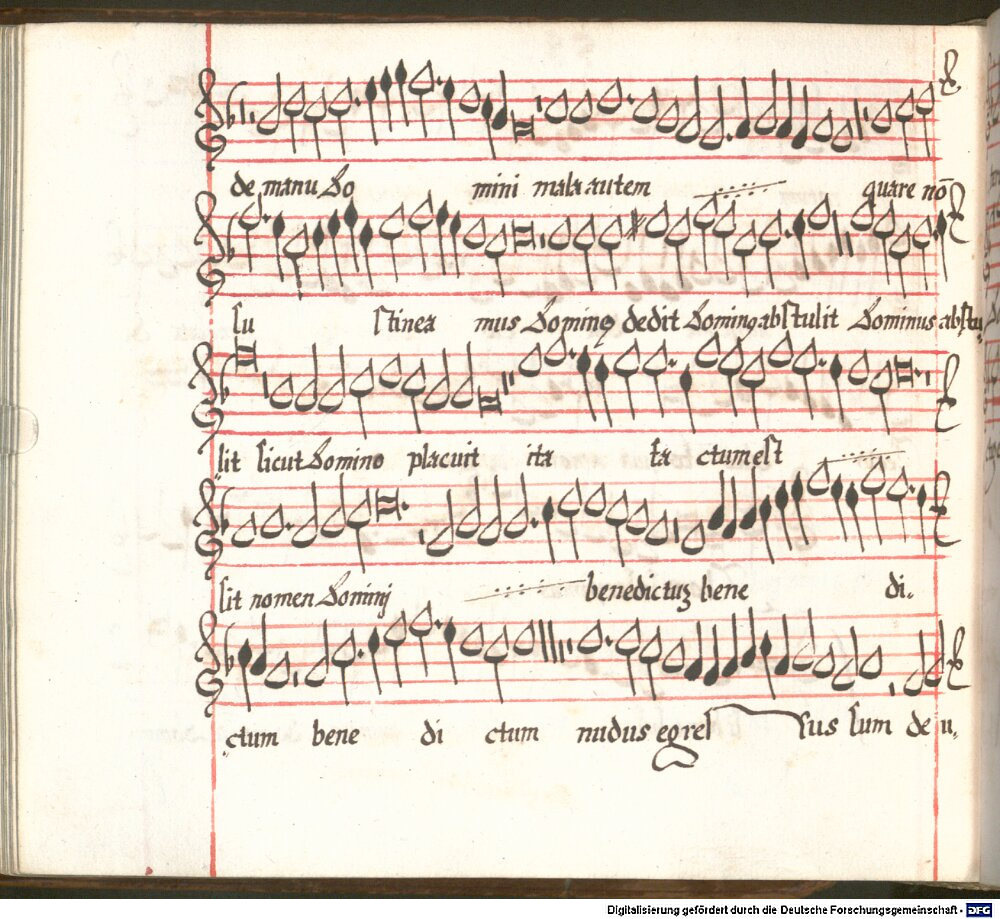 de manu Do mini mala autem quare nō
su stinea mus Dominꝰ dedit Dominꝰ abstulit Dominus abstu
lit sicut Domino placuit ita fa ctum est
sit nomen Dominj benedictus bene di
ctum bene di ctum nudus egres sus sum de u
Digitalisierung gefördert durch die Deutsche Forschungsgemeinschaft - DFG